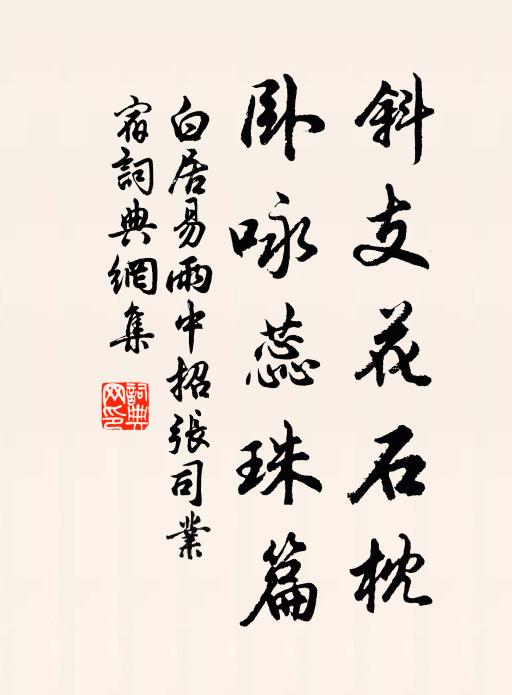 斜支花石枕
卧咏蕊珠篇
白居易雨中招張司業
宿詞典網集
詞典网印